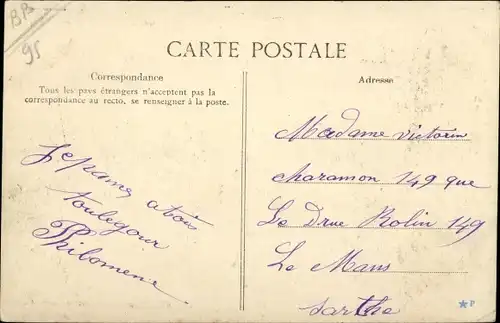 BB
95
CARTE POSTALE
Correspondance
Tous les pays étrangers n'acceptent pas la
correspondance au recto, se renseigner à la poste.
Adresse
Jepame atoi
toulegour
Philomene
Madame victorin
charamon 149 que
Le Drue Rolin 149
Le Mans
sarthe
P